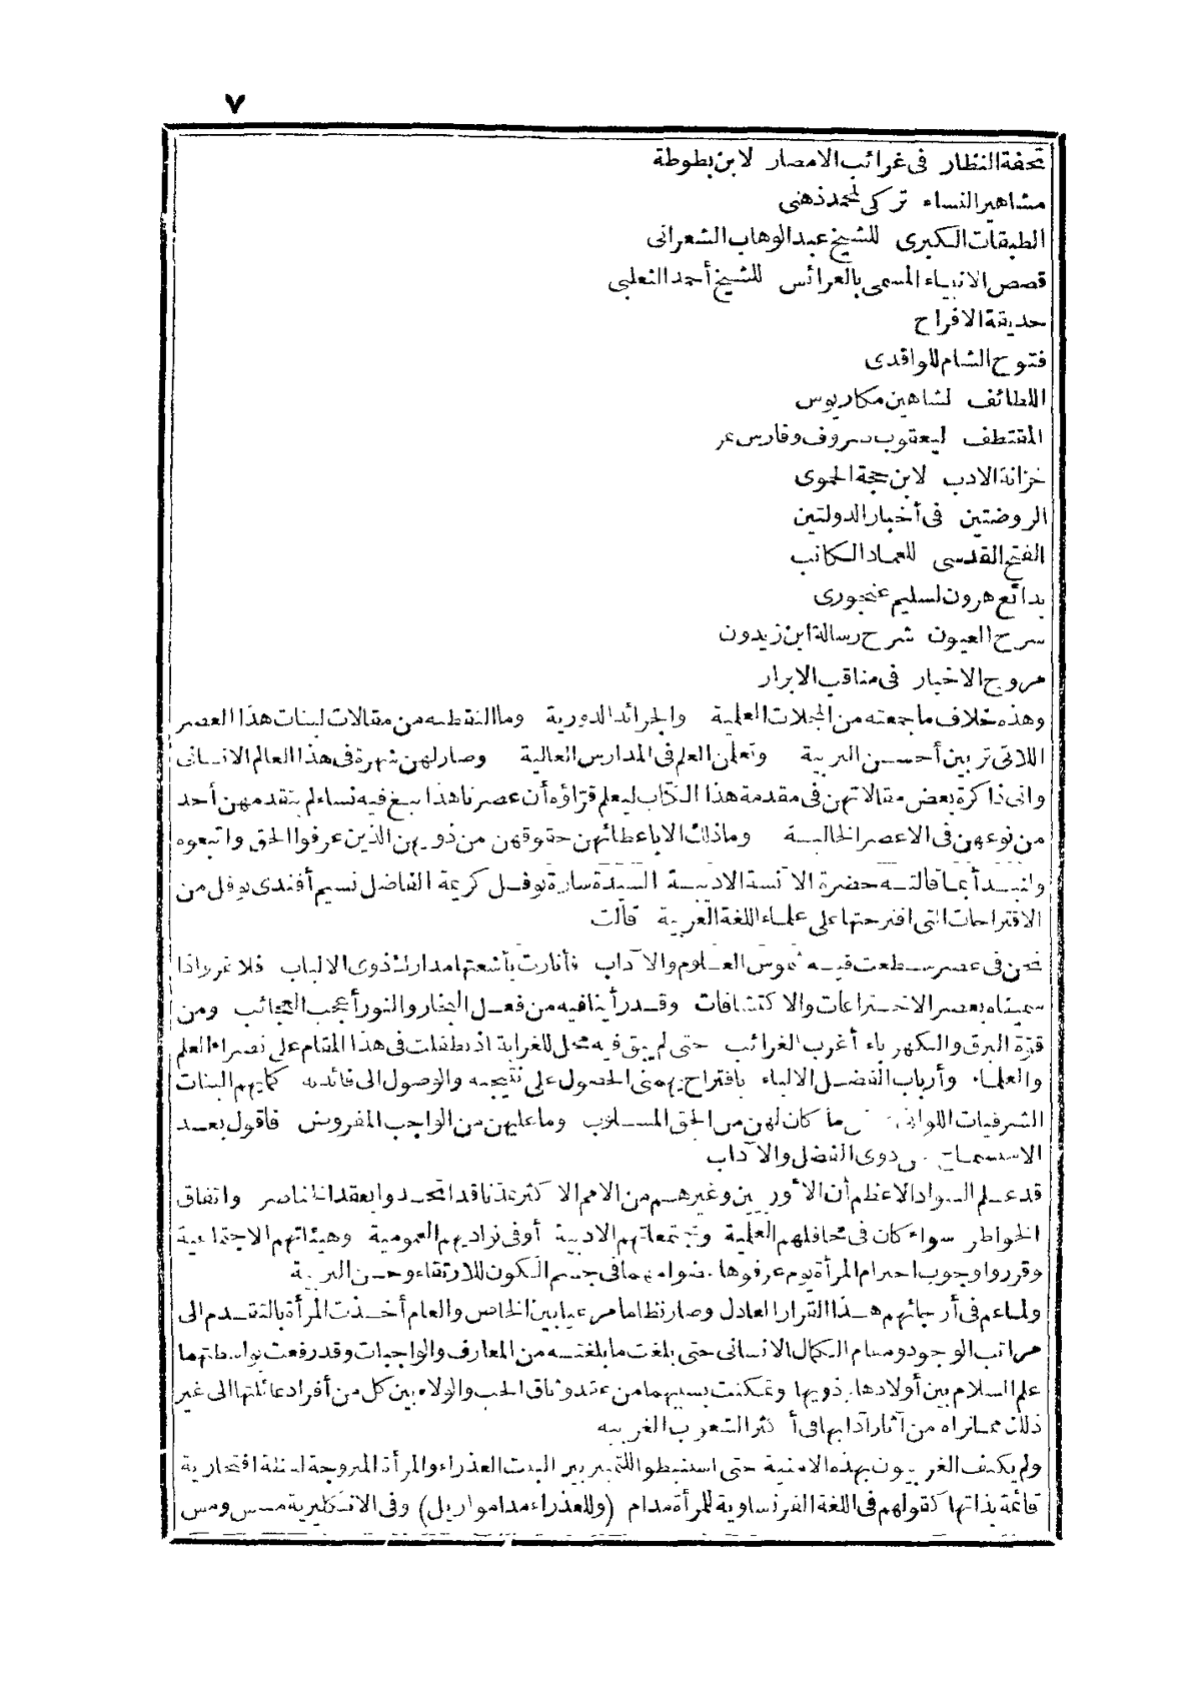 ٧
تحفة النظار فى غرائب الامصار لابن بطوطة
مشاهير النساء تركى لمحمد ذهنى
الطبقات الكبرى للشيخ عبد الوهاب الشعرانى
قصص الانبياء المسمى بالعرائس للشيخ أحمد الثعلبى
حديقة الافراح
فتوح الشام للواقدى
اللطائف لشاهين مكاريوس
المقتطف ليعقوب صروف وفارس نمر
خزانة الادب لابن حجة الحموى
الروضتين فى أخبار الدولتين
الفتح القدسى للعماد الكاتب
بدائع هرون لسليم عنحورى
سرح العيون شرح رسالة ابن زيدون
مروج الاخيار فى مناقب الابرار
وهذه خلاف ما جمعته من المجلات العلمية والجرائد الدورية وما التقطته من مقالات لبنات هذا العصر
اللاتى تربين أحسن التربية وتعلمن العلم فى المدارس العالية وصار لهن شهرة فى هذا العالم الانسانى
وانى ذاكرة بعض مقالاتهن فى مقدمة هذا الكتاب ليعلم قراؤه أن عصرنا هذا نبغ فيه نساء لم يتقدمهن أحد
من نوعهن فى الاعصر الخالية وماذلك الا باعطائهن حقوقهن من ذويهن الذين عرفوا الحق واتبعوه
ولنبدأ بما قالته حضرة الآنسة الاديبة السيدة سارة نوفل كريمة الفاضل نسيم أفندى نوفل من
الاقتراحات التى اقترحتها على علماء اللغة العربية قالت
نحن فى عصر سطعت فيه شموس العلوم والآداب فأنارت بأشعتها مدارك ذوى الالباب فلا غرو اذا
سميناه بعصر الاختراعات والاكتشافات وقد رأينا فيه من فعل البخار والنور أعجب العجائب ومن
قوة البرق والكهرباء أغرب الغرائب حتى لم يبق فيه محل للغرابة اذ تطفلت فى هذا المقام على نصراء العلم
والعلماء وأرباب الفضل الالباء باقتراح يهمنى الحصول على نتيجته والوصول الى فائدته كما يهم البنات
الشرقيات اللواتى ما كان لهن من الحق المسلوب وما عليهن من الواجب المفروض فاقول بعد
الاستسماح من ذوى الفضل والآداب
قد علم السواد الاعظم أن الاوربيين وغيرهم من الامم الاكثر تمدنا قد اتحدوا بعقد الخناصر واتفاق
الخواطر سواء كان فى محافلهم العلمية ومجتمعاتهم الادبية أو فى نواديهم العمومية وهيئاتهم الاجتماعية
وقرروا وجوب احترام المرأة يوم عرفوها عضوا مهما فى جسم الكون للارتقاء وحسن التربية
ولما عم فى أرجائهم هذا القرار العادل وصار نظاما مرعيا بين الخاص والعام أخذت المرأة بالتقدم الى
مراتب الوجود ومقام الكمال الانسانى حتى بلغت ما بلغته من المعارف والواجبات وقد رفعت بواسطتهما
علم السلام بين أولادها وذويها وتمكنت بسببهما من عقد وثاق الحب والولاء بين كل من أفراد عائلتها الى غير
ذلك مما نراه من آثار آدابها فى أكثر الشعوب الغربيه
ولم يكتف الغربيون بهذه الامنية حتى استنبطوا للتمييز بين البنت العذراء والمرأة المتزوجة لفظة افتخارية
قائمة بذاتها كقولهم فى اللغة الفرنساوية للمرأة مدام (وللعذراء مداموازيل) وفى الانكليزية مسس ومس